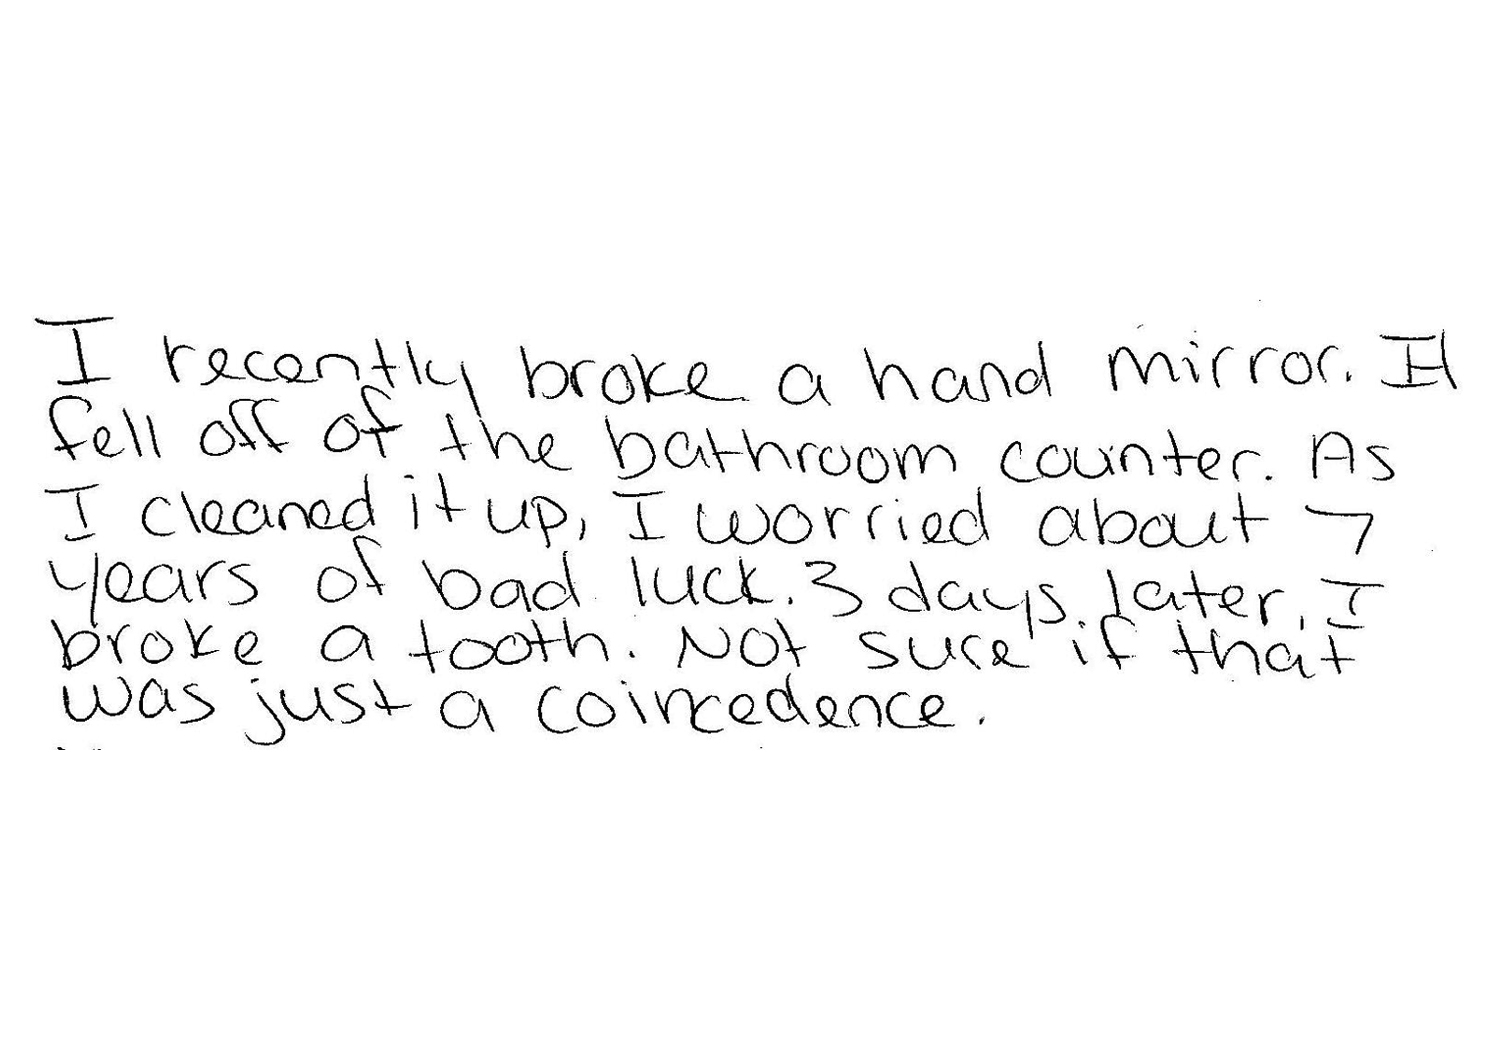 I recently broke a hand mirror. It
fell off of the bathroom counter. As
I cleaned it up, I worried about 7
years of bad luck. 3 days later, I
broke a tooth. Not sure if that
was just a coincedence.